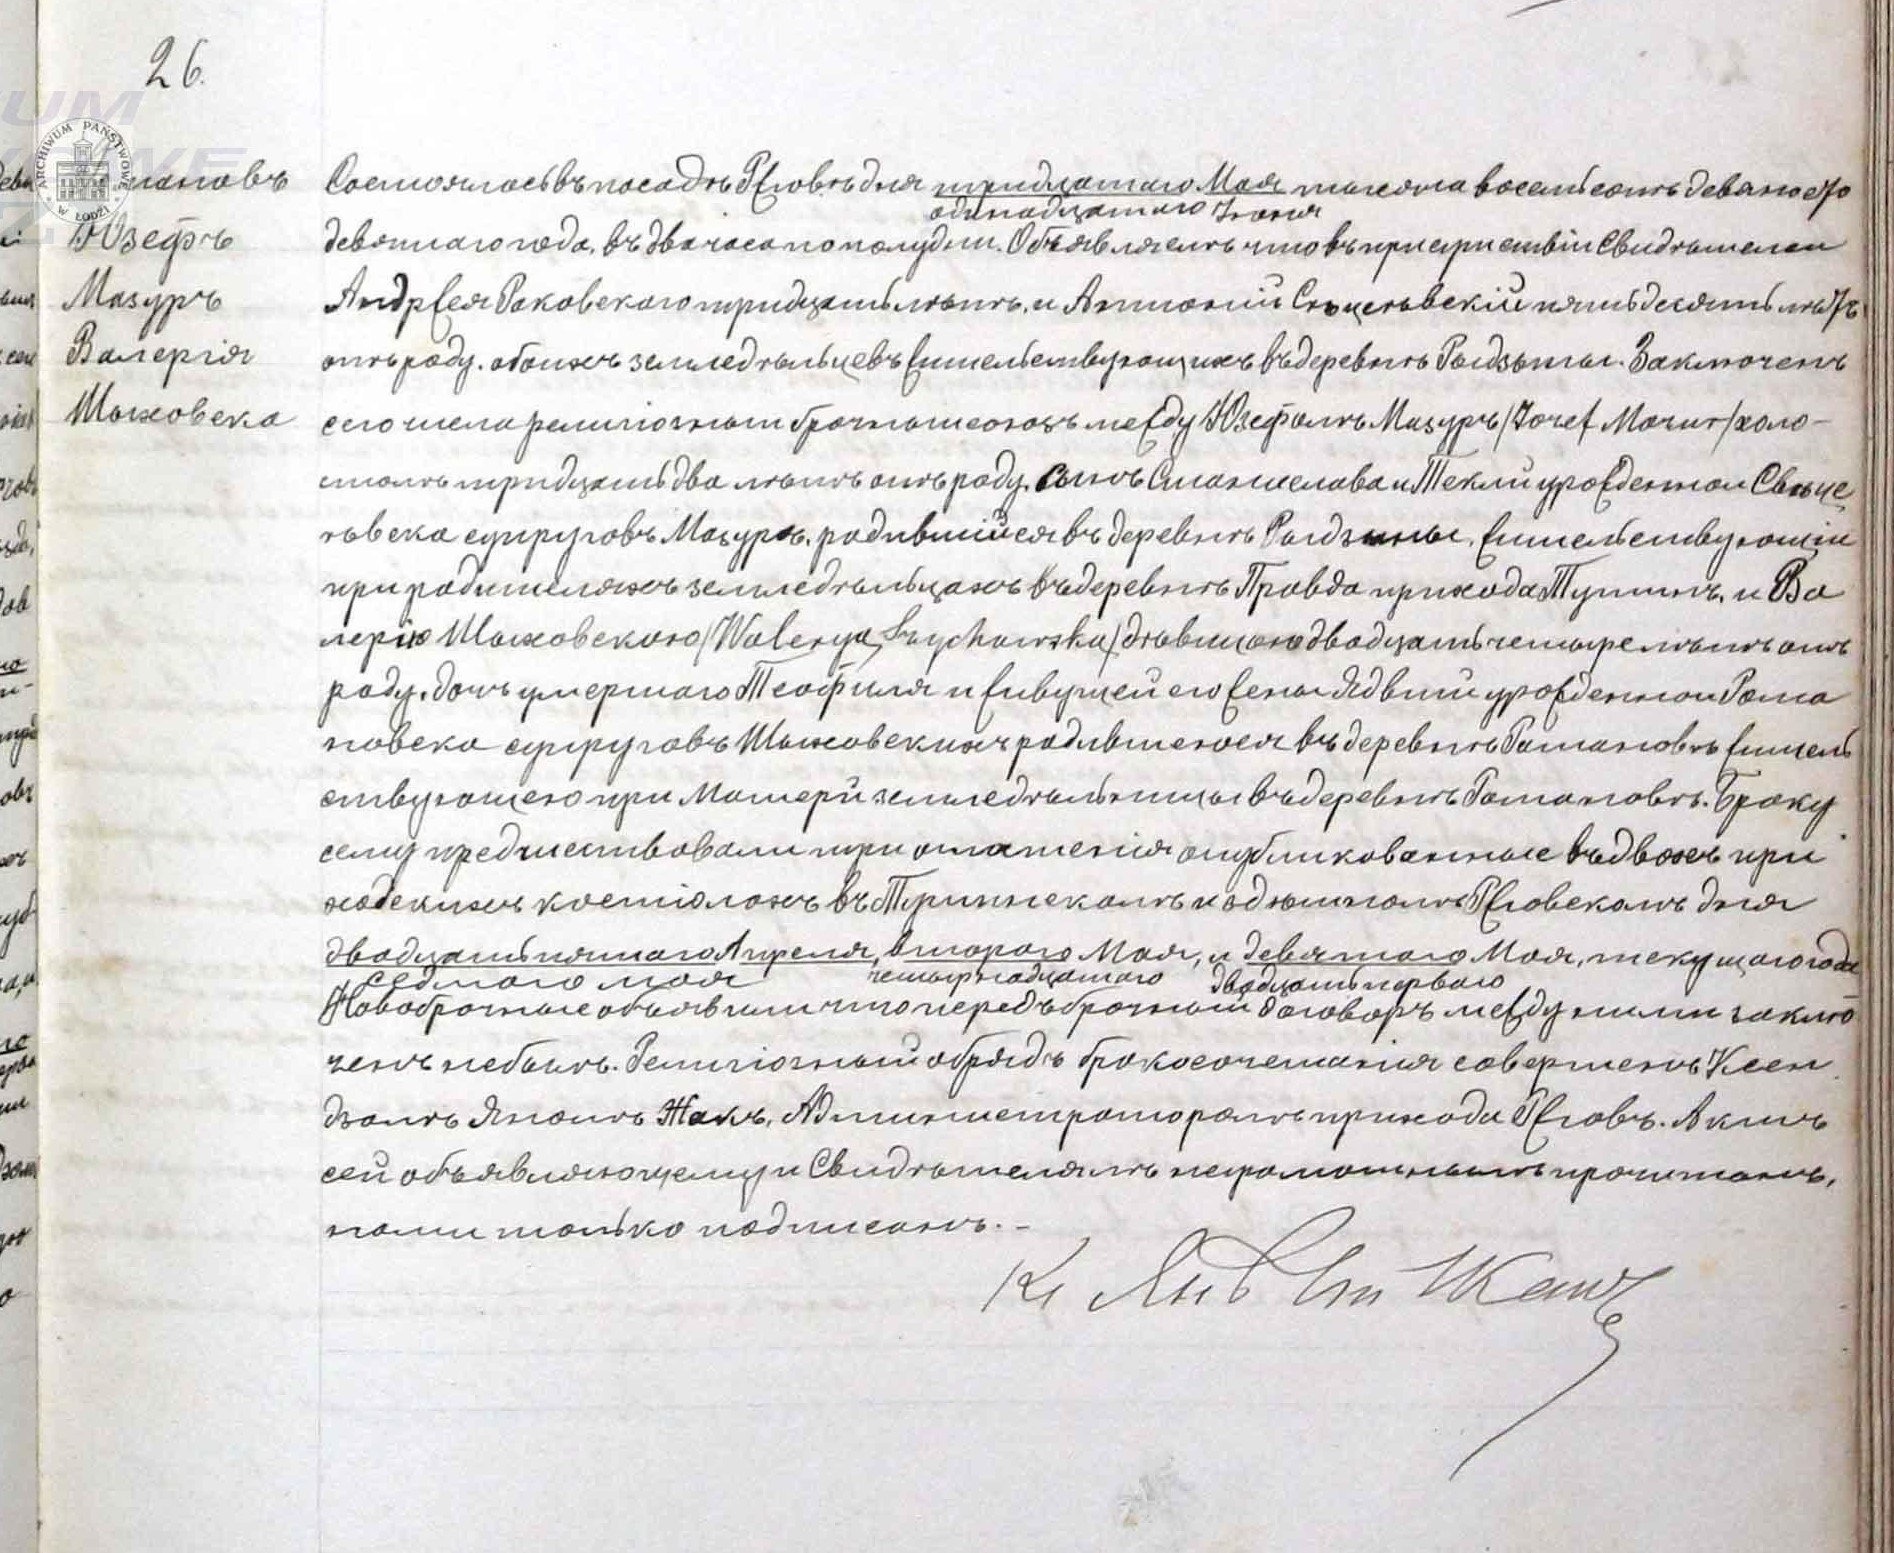 26.
ARCHIWUM PAŃSTWOWE W ŁODZI
мановъ
Юзефъ
Мазуръ
Валерія
Шыховска
Состоялось въ посадѣ Ржговѣ дня тридцатаго Мая тысяча восемьсотъ девяносто
одинадцатаго Іюня
девятаго года, въ два часа по полудни. Объявляемъ что въ присутствіи Свидѣтелеи
Андржея Раковскаго тридцать лѣтъ, и Антоній Свѣцевскій пятьдесятъ лѣтъ
отъ роду. обоихъ земледѣльцевъ жительствующихъ въ деревнѣ Рыдзыны. Заключенъ
сего числа религіозныи брачныи союзъ между Юзефомъ Мазуръ /Józef Mazur/ холо-
стомъ тридцать два лѣтъ отъ роду. Сынъ Станислава и Текли урожденнои Свѣце
ѣвска супруговъ Мазуръ, родившійся въ деревнѣ Рыдзыны, жительствующіи
при родителяхъ земледѣльцахъ въ деревнѣ Правда прихода Тушинъ, и Ва
лерію Шыховскою /Walerya Szychowska/ дѣвицою двадцать четыре лѣтъ отъ
роду. дочь умершаго Теофиля и живущей его жены Ядвиги урожденнои Рома
новска супруговъ Шыховскихъ родившеюся въ деревнѣ Романовѣ житель
ствующею при Матери земледѣльницы въ деревнѣ Романовѣ. Браку
сему предшествовали три оглашенія опубликованные въ двохъ при
ходскихъ костіолахъ въ Тушинскомъ и здѣшномъ Ржговскомъ дня
двадцать пятаго Апреля, втораго Мая, и девятаго Мая, текущаго года
седмаго мая четырнадцатаго двадцать перваго
Новобрачные объявили что передъ брачный договоръ между ними заклю
ченъ небылъ. Религіозный обрядъ бракосочетанія совершенъ Ксен
дзомъ Яномъ Жакъ, Администраторомъ прихода Ржговъ. Актъ
сей объявляющему и Свидѣтелямъ неграмотнымъ прочитанъ,
нами только подписанъ. -
Кс Янъ